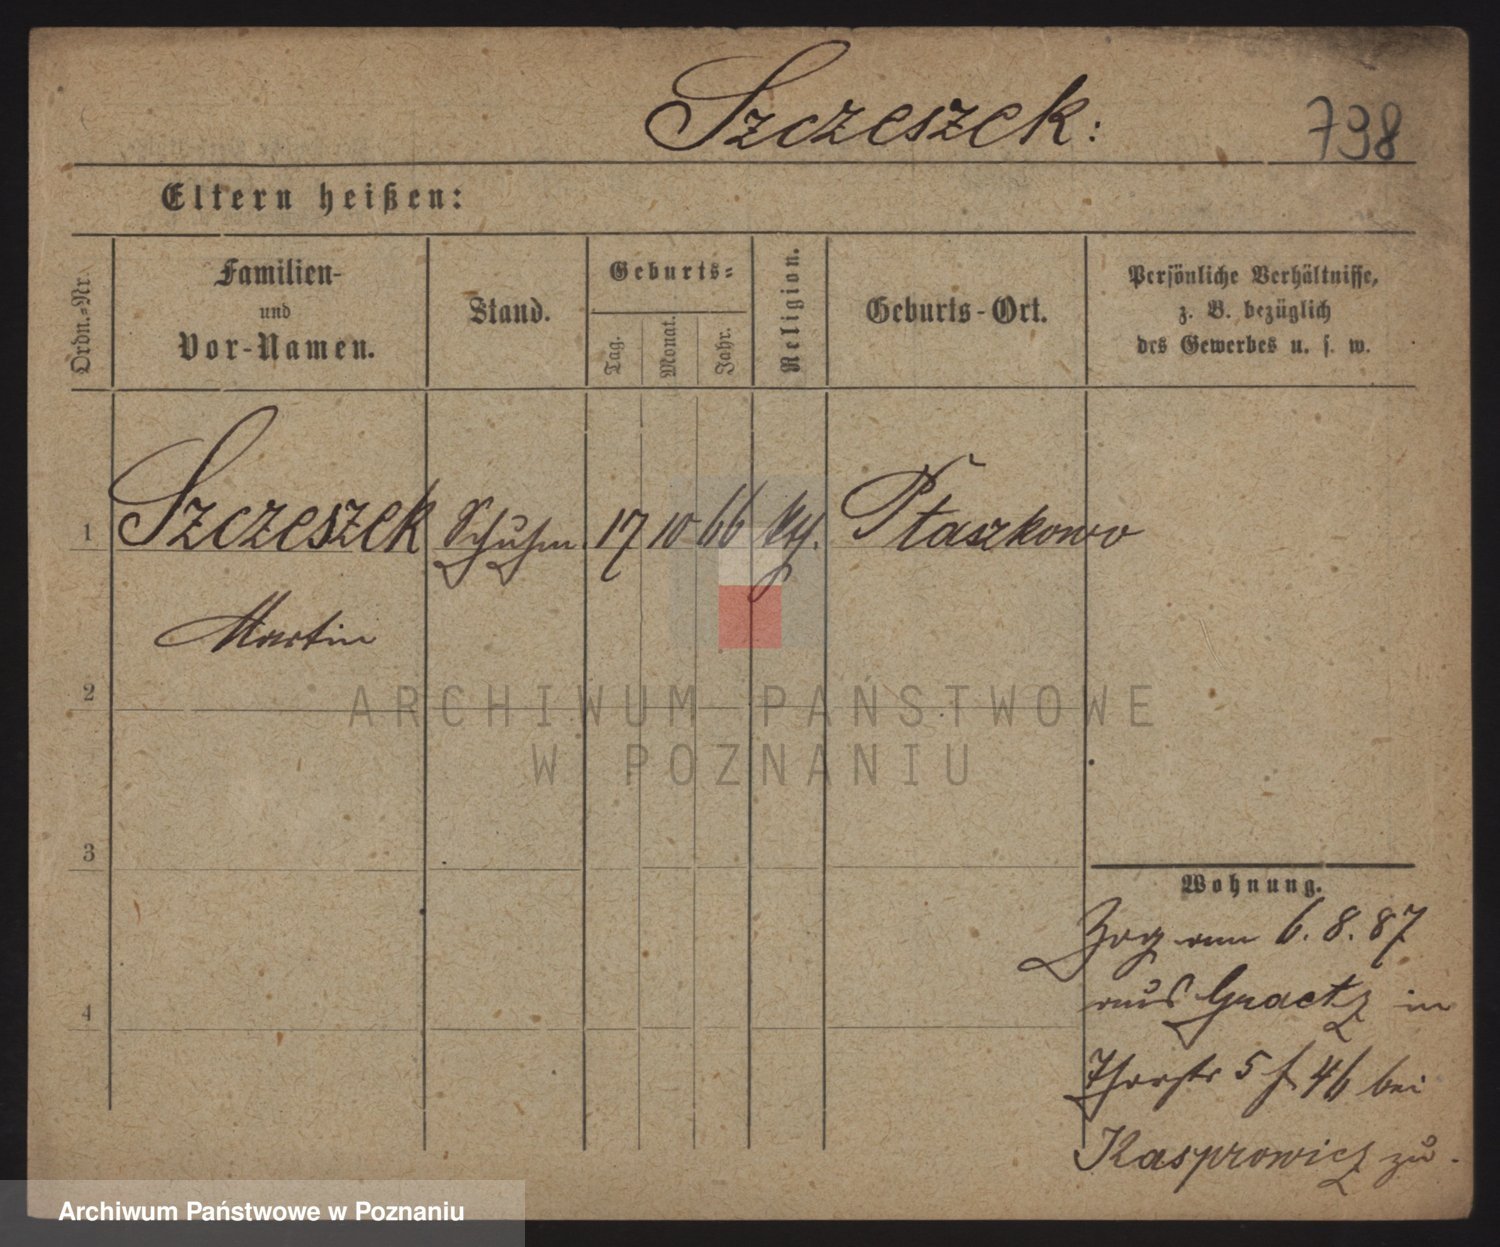 Szczeszek:
738
Eltern heißen:
Ordn.-Nr.
Familien-
und
Vor-Namen.
Stand.
Geburts:
Tag.
Monat.
Jahr.
Religion.
Geburts-Ort.
Persönliche Verhältnisse,
z. B. bezüglich
des Gewerbes u. s. w.
1
Szczeszek Schuhm. 17 10 66 Ptaszkowo
Martin
2
3
4
Wohnung.
Zog am 6. 8. 87
aus Graetz in
5 46 bei
Kasprowicz zu.
ARCHIWUM PAŃSTWOWE
W POZNANIU
Archiwum Państwowe w Poznaniu